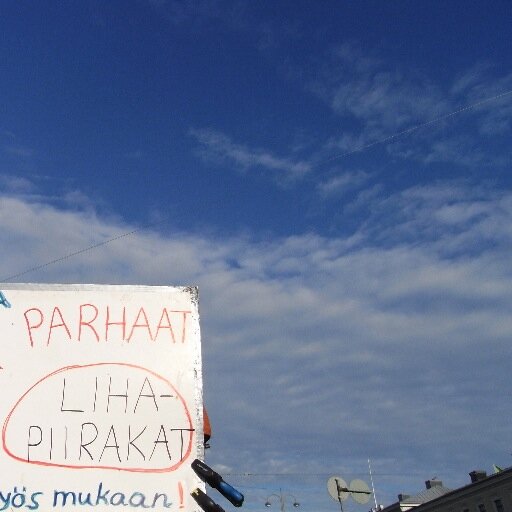 PARHAAT
LIHA-
PIIRAKAT
yös mukaan!